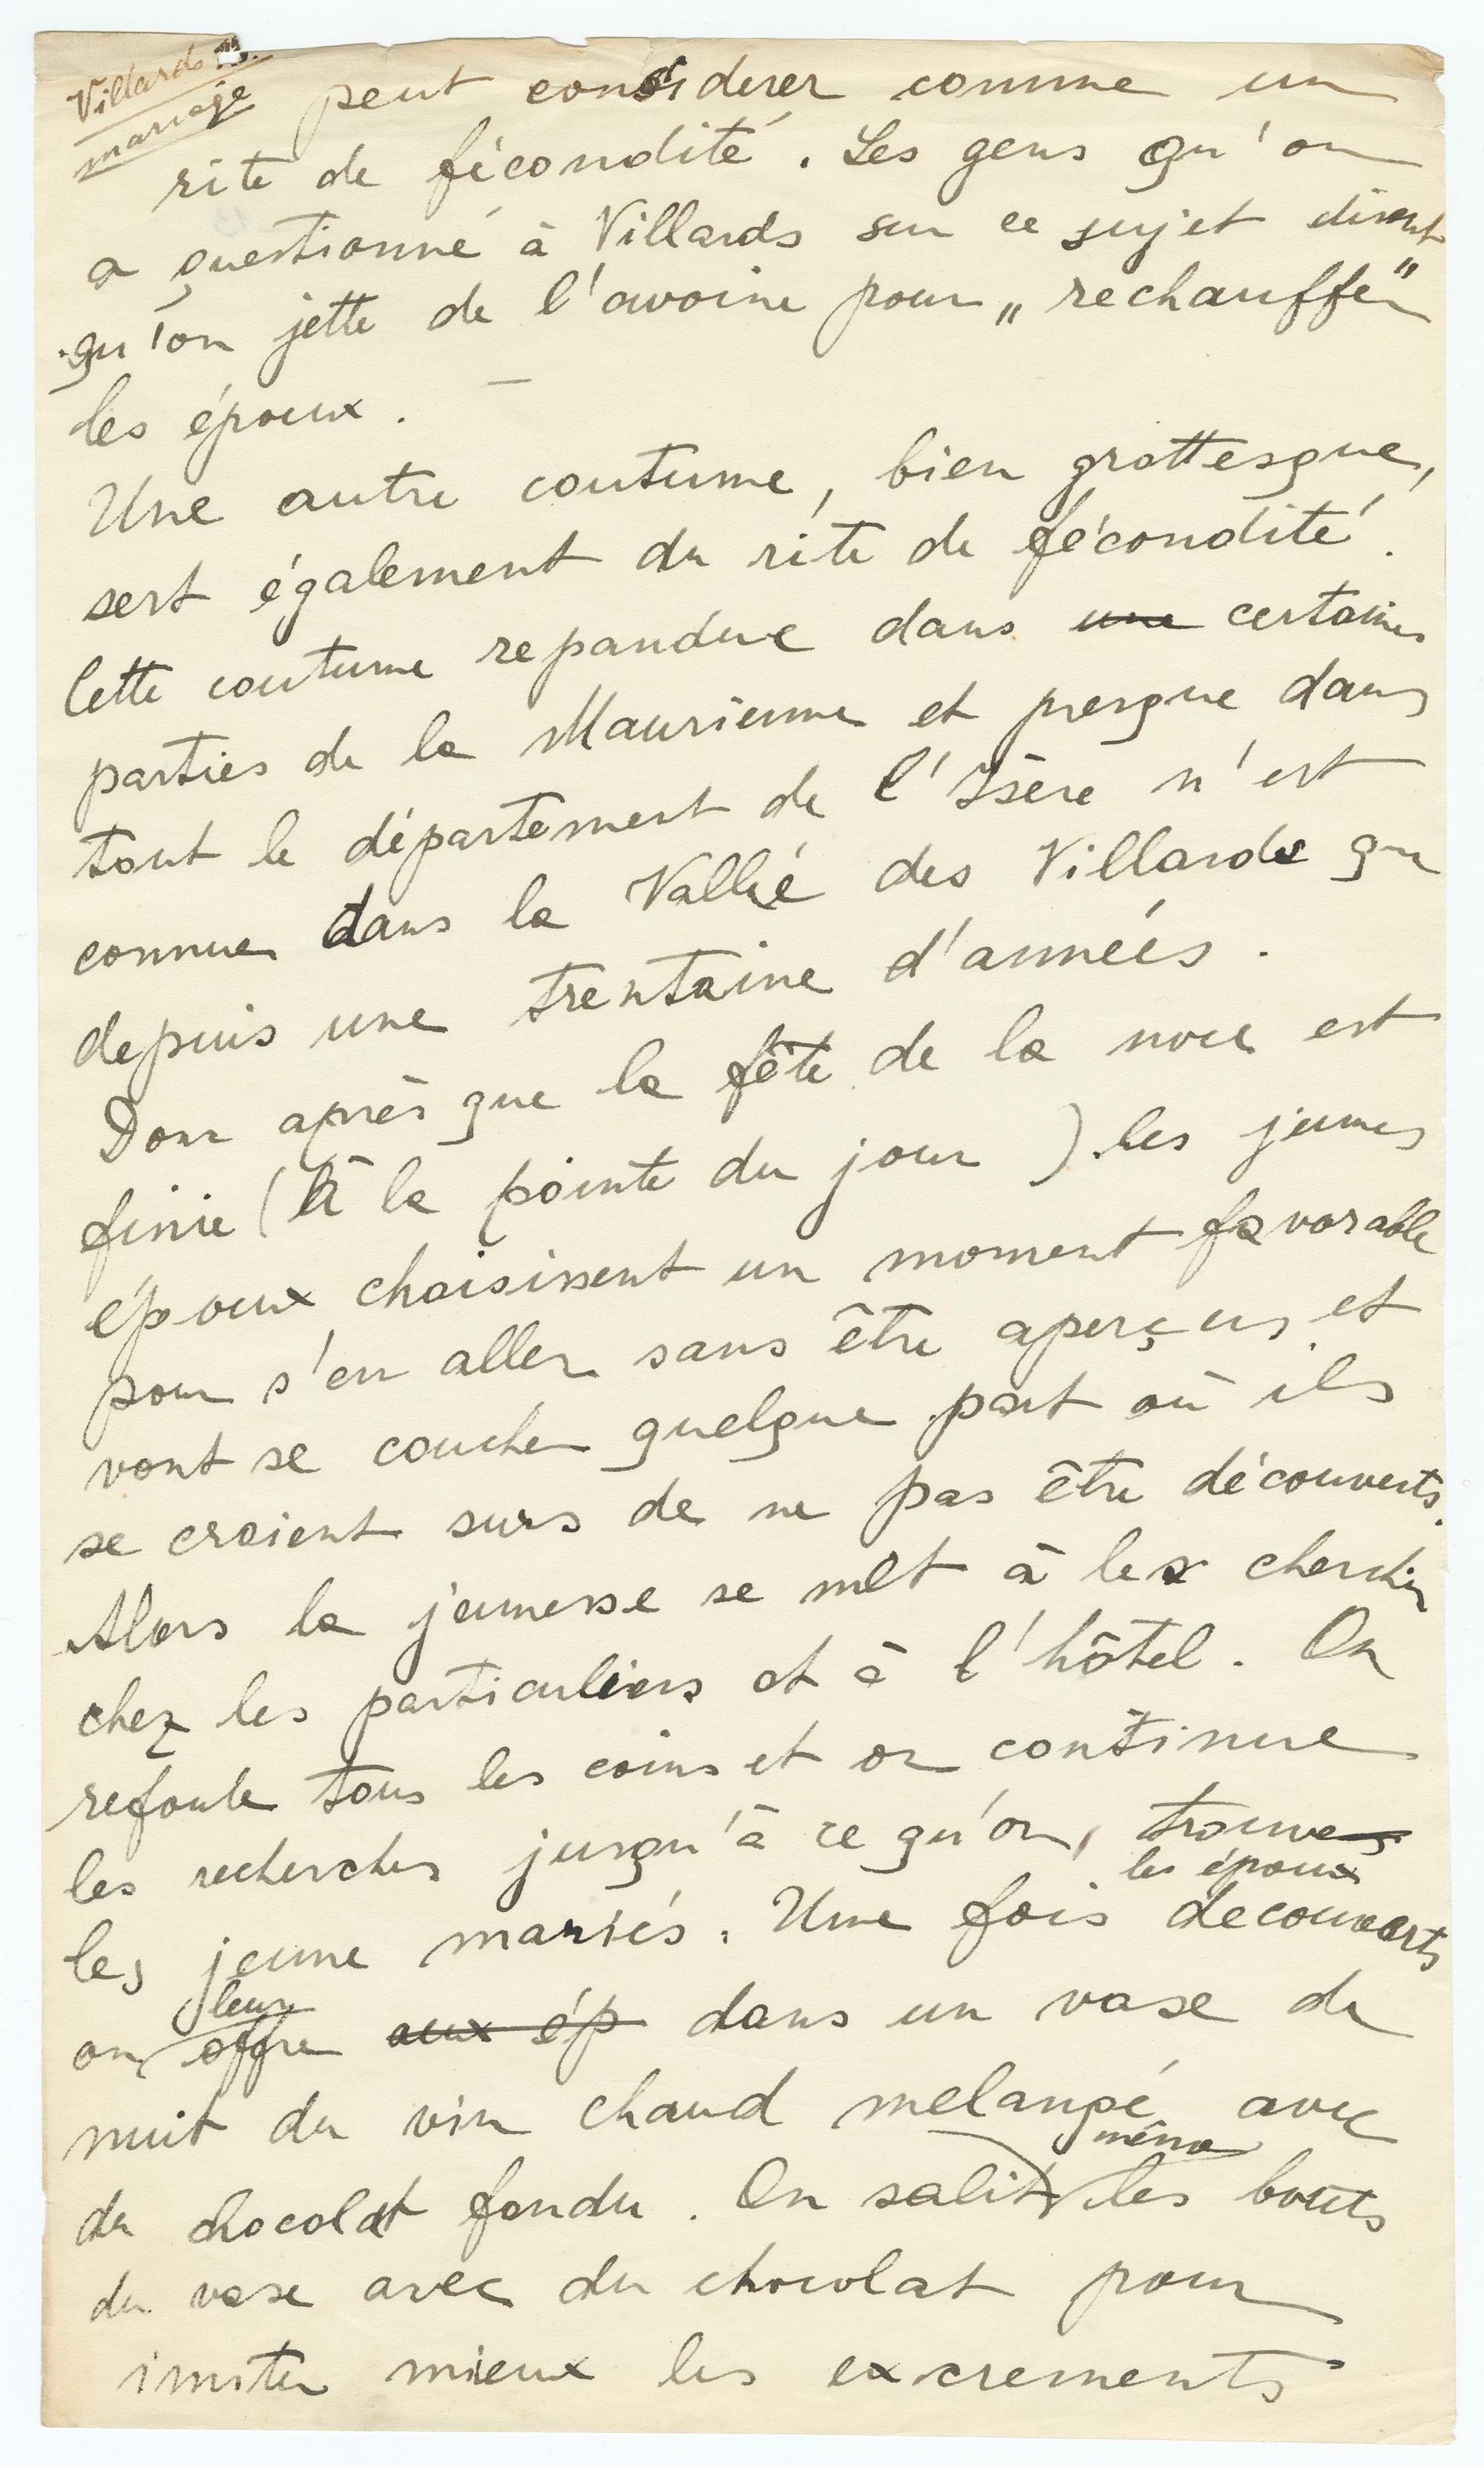 Villards
mariage
peut considerer comme un
rite de fécondité. Les gens qu'on
a questionné à Villards sur ce sujet disent
qu'on jette de l'avoine pour „rechauffer"
les époux. —
Une autre coutume, bien grottesque,
sert également du rite de fécondité.
Cette coutume repandue dans une certaines
parties de la Maurienne et presque dans
tout le département de l'Isère n'est
connue dans la Vallée des Villards que
depuis une trentaine d'années.
Donc après que la fête de la noce est
finie (à la pointe du jour) les jeunes
époux choisissent un moment favorable
pour s'en aller sans être aperçus et
vont se coucher quelque part où ils
se croient surs de ne pas être découverts.
Alors la jeunesse se met à les chercher
chez les particuliers et à l'hôtel. On
refoule tous les coins et on continue
les recherches jusqu'à ce qu'on trouve
les époux
les jeune mariés. Une fois decouverts
leur
on offre aux ép dans un vase de
nuit du vin chaud melangé avec
même
du chocolat fondu. On salit les bouts
du vase avec du chocolat pour
imiter mieux les excrements